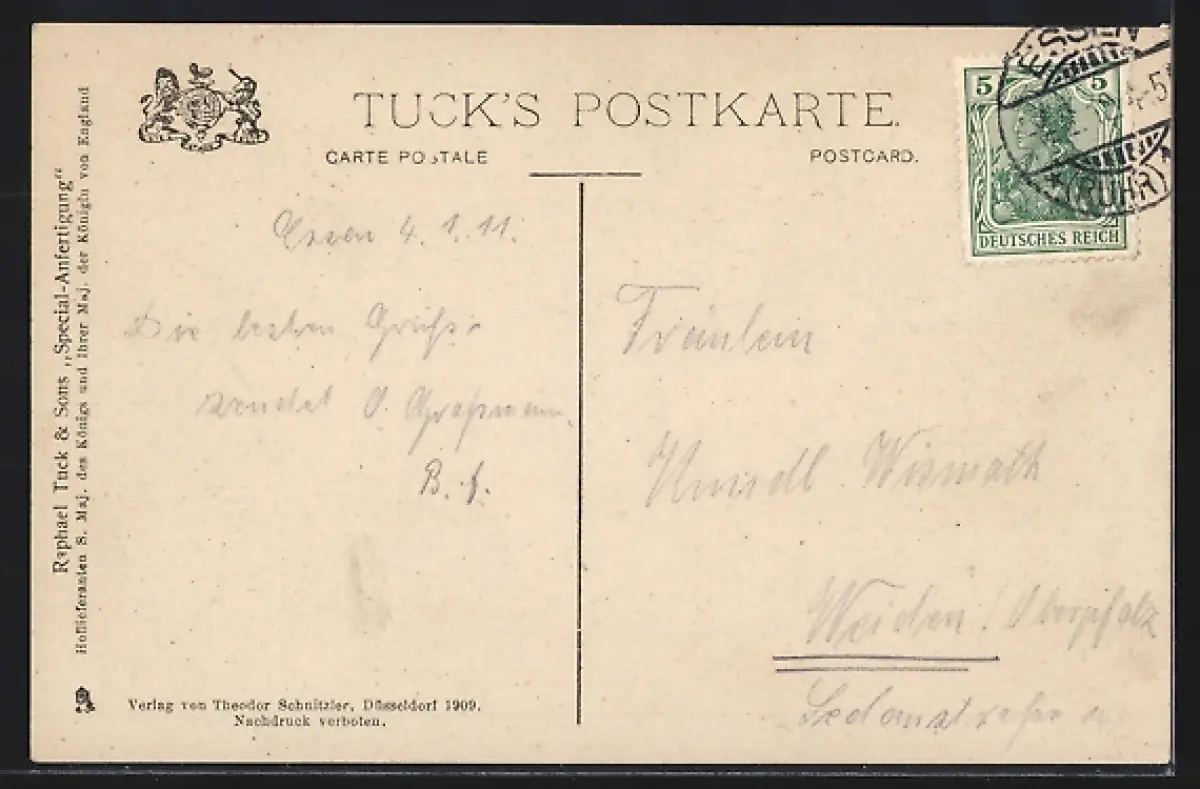 TUCK'S POSTKARTE.
CARTE POSTALE
POSTCARD.
Raphael Tuck & Sons „Special-Anfertigung"
Hoflieferanten S. Maj. des Königs und Ihrer Maj. der Königin von England
5 5
DEUTSCHES REICH
ESSEN
*(RUHR)
Essen 4.1.11.
Die besten Grüße
sendet O. Graßmann.
Fräulein
Wismath
Weiden Oberpfalz
Sedanstraße
Verlag von Theodor Schnitzler, Düsseldorf 1909.
Nachdruck verboten.